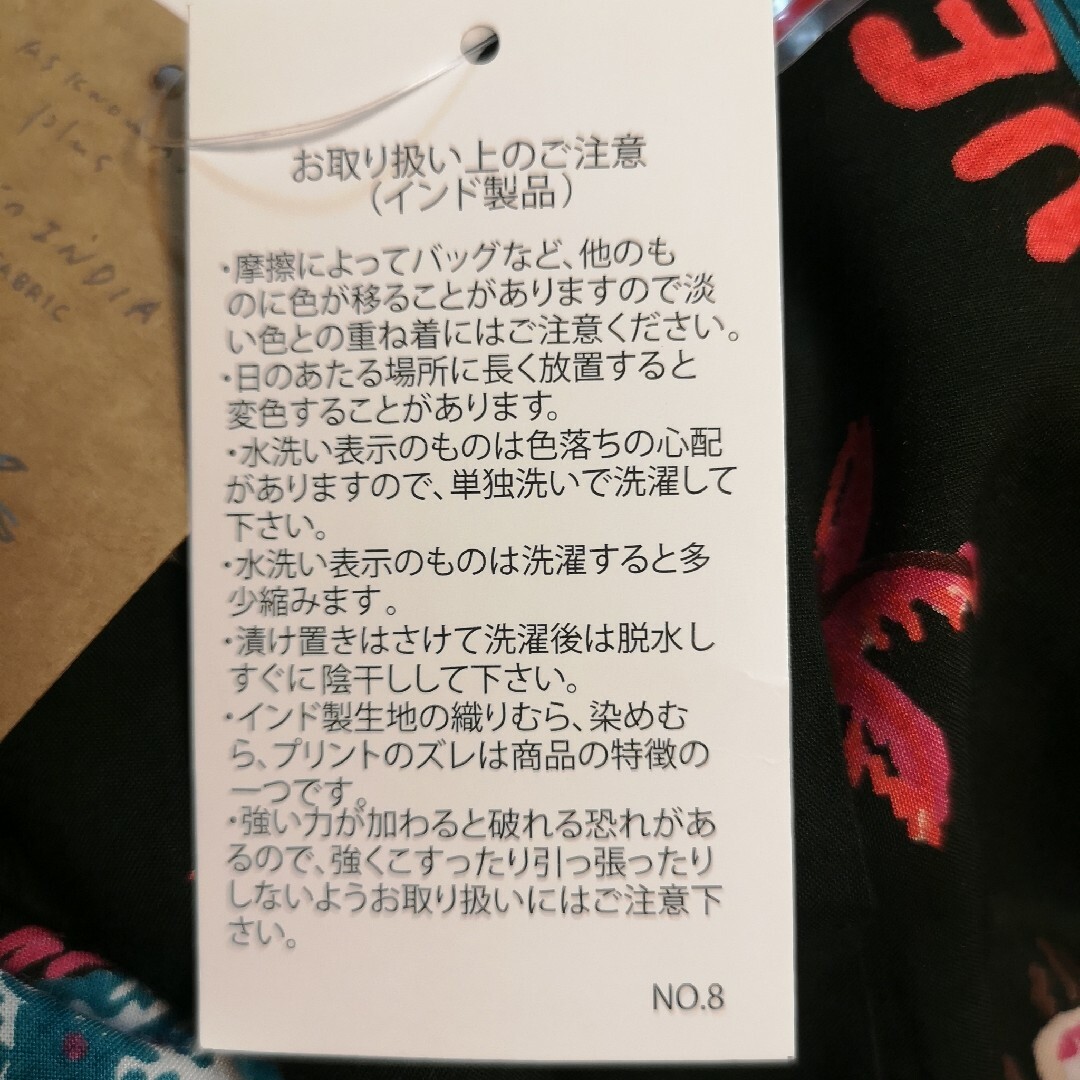 AS KNOW
plus
in INDIA
FABRIC
お取り扱い上のご注意
(インド製品)
・摩擦によってバッグなど、他のも
のに色が移ることがありますので淡
い色との重ね着にはご注意ください。
・日のあたる場所に長く放置すると
変色することがあります。
・水洗い表示のものは色落ちの心配
がありますので、単独洗いで洗濯して
下さい。
・水洗い表示のものは洗濯すると多
少縮みます。
・漬け置きはさけて洗濯後は脱水し
すぐに陰干しして下さい。
・インド製生地の織りむら、染めむ
ら、プリントのズレは商品の特徴の
一つです。
・強い力が加わると破れる恐れがあ
るので、強くこすったり引っ張ったり
しないようお取り扱いにはご注意下
さい。
NO.8